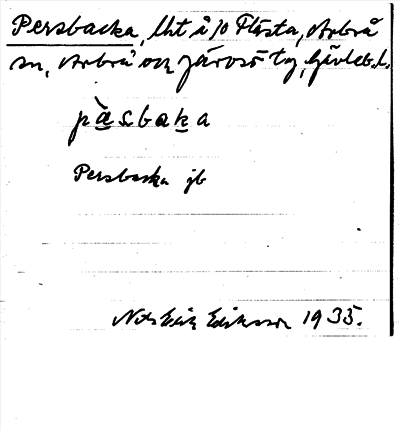 Persbacka, lht å 10 Flästa, Arbrå
sn, Arbrå och Järvsö tg, Gävleb.l.
pàsbaka
Persbacka jb
Nils Erik Eriksson 1935.